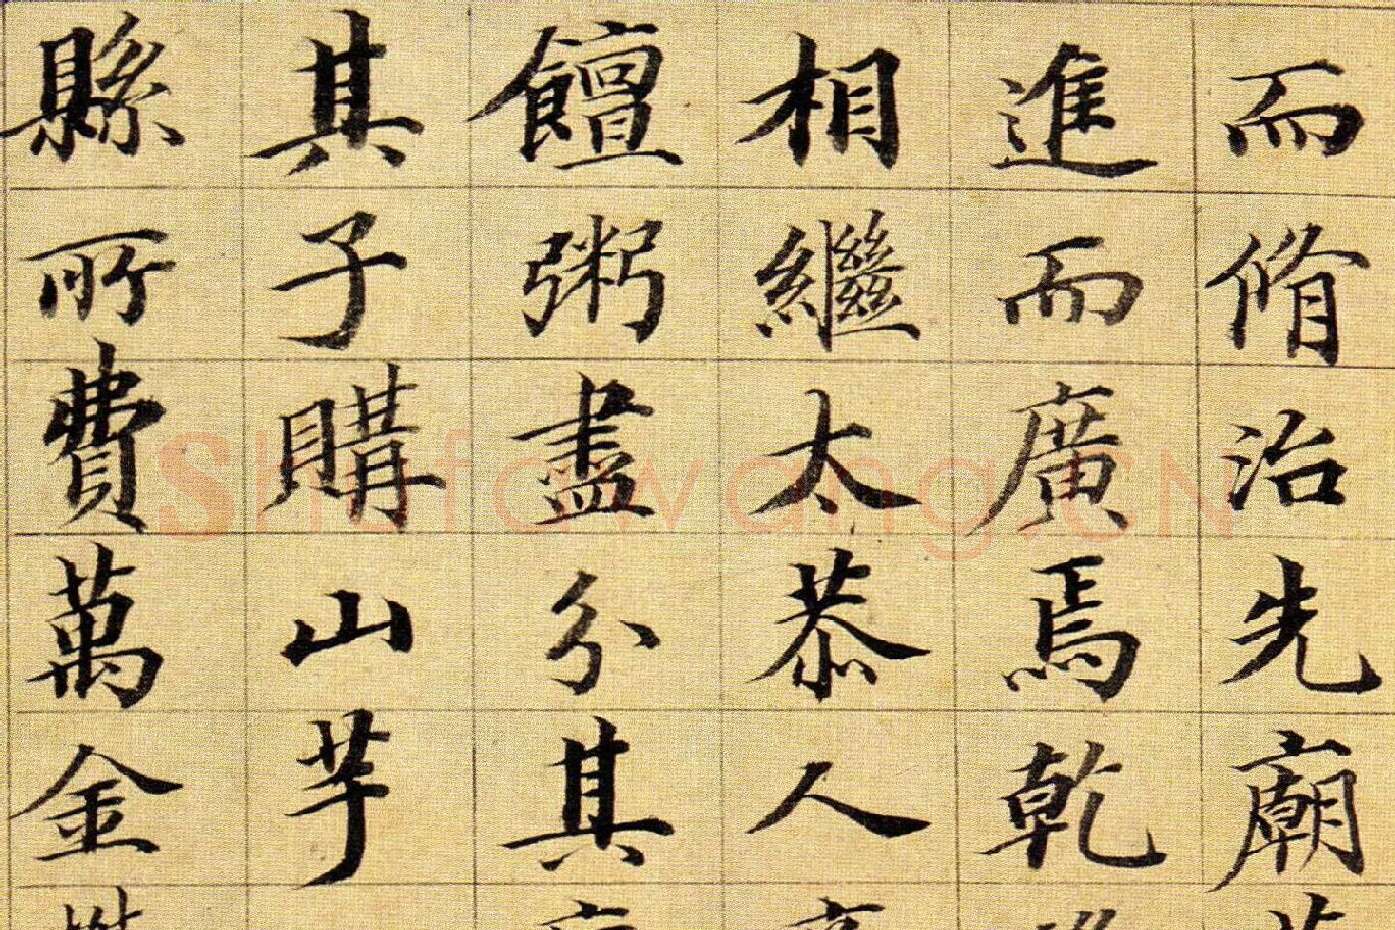 而脩治先廟
進而廣焉乾
相繼太恭人
饘粥盡分其
其子購山芋
縣所費萬金
Shufawang.CN